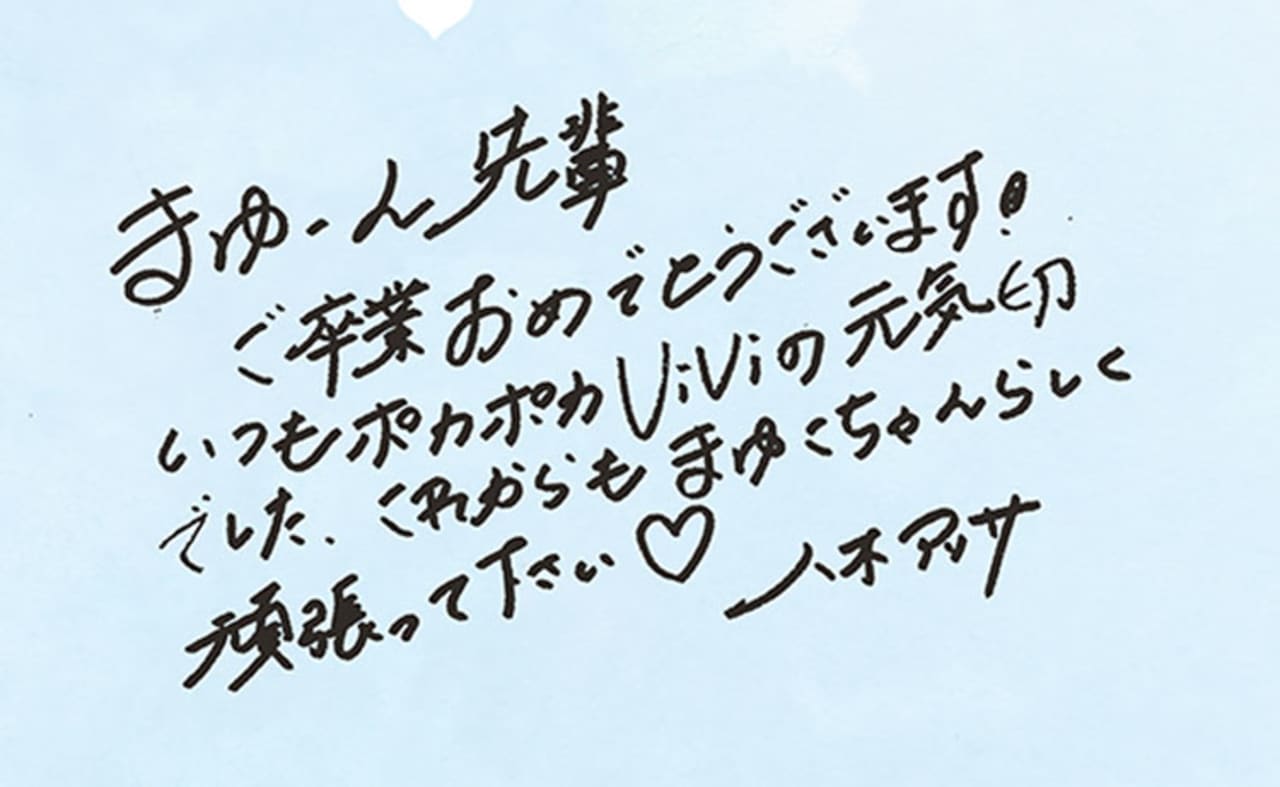 まゆーん先輩
ご卒業おめでとうございます!
いつもポカポカViViの元気印
でした、これからもまゆこちゃんらしく
頑張って下さい♡
八木アリサ